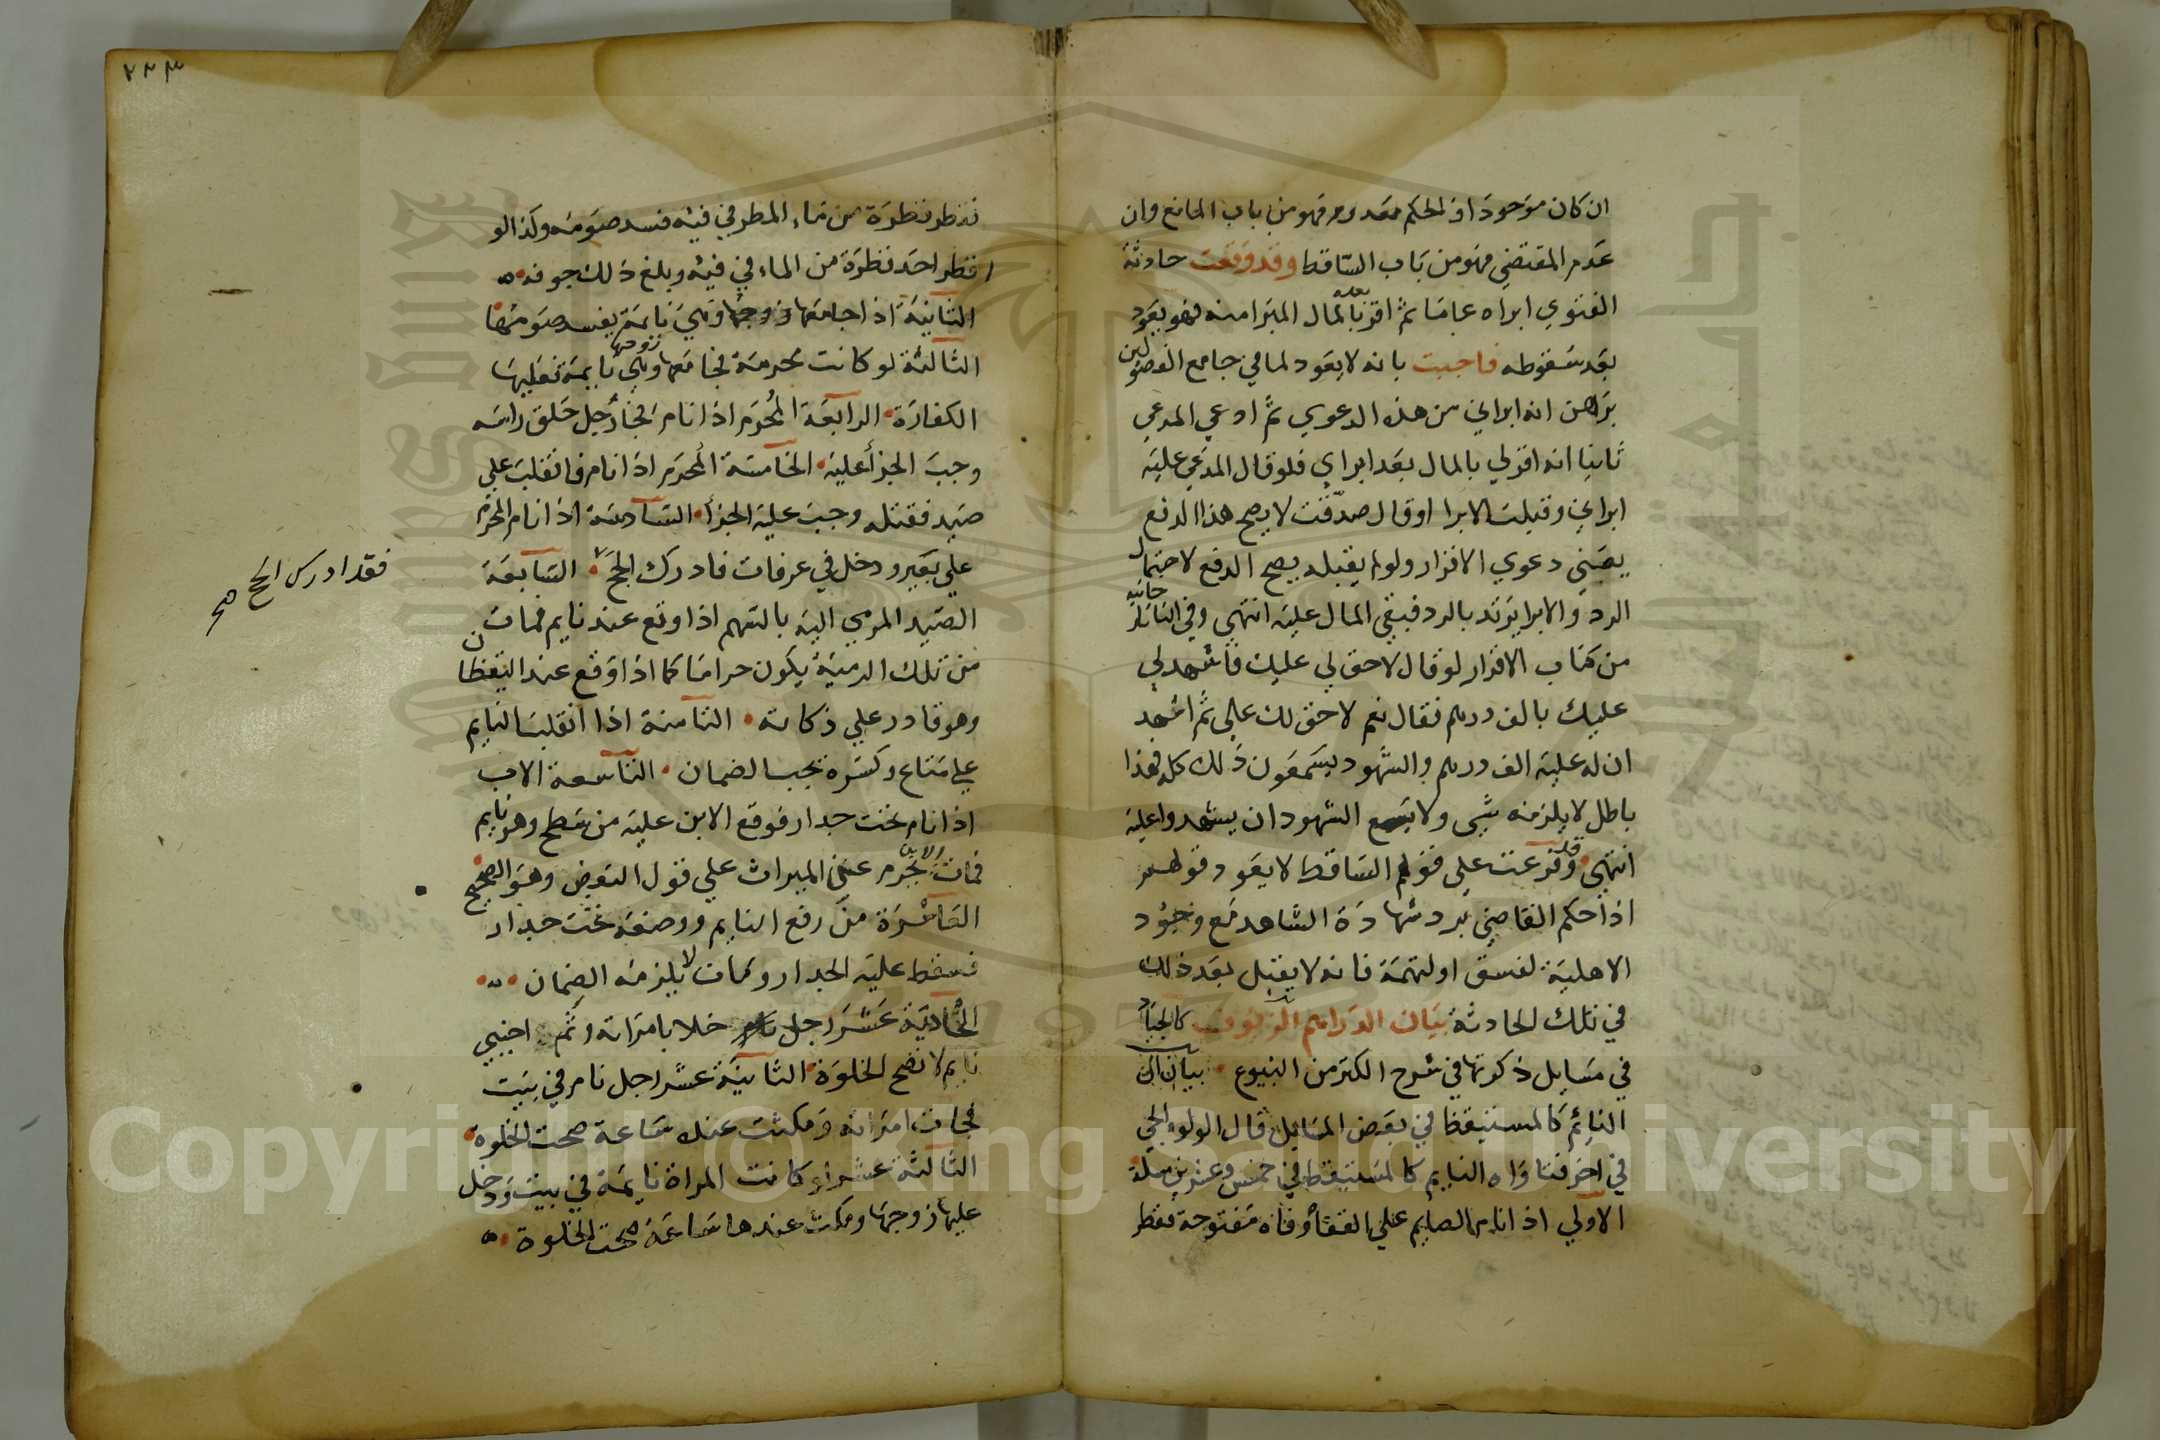 ان كان موجودا والحكم معدوم فهو من باب المانع وان
عدم المقتضي فهو من باب الساقط وقد وقعت حادثة
الفتوي ابراه عاما ثم اقر بعده بالمال المبرا منه فهو يعود
بعد سقوطه فاجبت بانه لا يعود لما في جامع الفصولين
برهن انه ابراني من هذه الدعوي ثم ادعي المدعي
ثانيا انه اقر لي بالمال بعد ابراي فلو قال المدعي عليه
ابراني وقبلت الابرا او قال صدقت لا يصح هذا الدفع
يعني دعوي الاقرار ولو لم يقبله يصح الدفع لاحتمال
الرد والابرا يرتد بالرد فبقي المال عليه انتهي وفي التاتارخانيه
من كتاب الاقرار لو قال لا حق لي عليك فاشهد لي
عليك بالف درهم فقال نعم لا حق لك علي ثم اشهد
ان له عليه الف درهم والشهود يسمعون ذلك كله فهذا
باطل لا يلزمه شي ولا يسع الشهود ان يشهدوا عليه
انتهي وقد فرعت علي قولهم الساقط لا يعود قولهم
اذا حكم القاضي برد شهادة الشاهد مع وجود
الاهلية لفسق او لتهمة فانه لا يقبل بعد ذلك
في تلك الحادثة بيان الدراهم الزيوف كالجياد
في مسايل ذكرتها في شرح الكنز من البيوع بيان ان
النائم كالمستيقظ في بعض المسايل قال الولوالجي
في اخر فتاواه النايم كالمستيقظ في خمس وعشرين مسلة
الاولي اذا نام الصايم علي القفا وفاه مفتوحة فقطر
٢٢٣
فقطر قطرة من ماء المطر في فيه فسد صومه وكذا لو
اقطر احد قطرة من الماء في فيه وبلغ ذلك جوفه
الثانية اذا جامعها زوجها وهي نايمة يفسد صومها
الثالثة لو كانت محرمة فجامعها زوجها وهي نايمة فعليها
الكفارة الرابعة المحرم اذا نام فجا رجل حلق راسه
وجب الجزا عليه الخامسة المحرم اذا نام فانقلب علي
صيد فقتله وجب عليه الجزا السادسة اذا نام المحرم
علي بعير ودخل في عرفات فادرك الحج السابعة
فقد ادرك الحج صح
الصيد المرمي اليه بالسهم اذا وقع عند نايم فمات
من تلك الرمية يكون حراما كما اذا وقع عند اليقظان
وهو قادر علي ذكاته الثامنة اذا انقلب النايم
علي متاع وكسره يجب الضمان التاسعة الاب
اذا نام تحت جدار فوقع الابن عليه من سطح وهو نايم
فمات الابن يحرم عن الميراث علي قول البعض وهو الصحيح
العاشرة من رفع النايم ووضعه تحت جدار
فسقط عليه الجدار ومات لا يلزمه الضمان
الحادية عشر رجل خلا بامراته وثم اجنبي
نايم لا تصح الخلوة الثانية عشر رجل نام في بيت
فجات امراته ومكثت عنده ساعة صحت الخلوة
الثالثة عشر لو كانت المراة نايمة في بيت ودخل
عليها زوجها ومكث عندها ساعة صحت الخلوة
Copyright © King Saud University